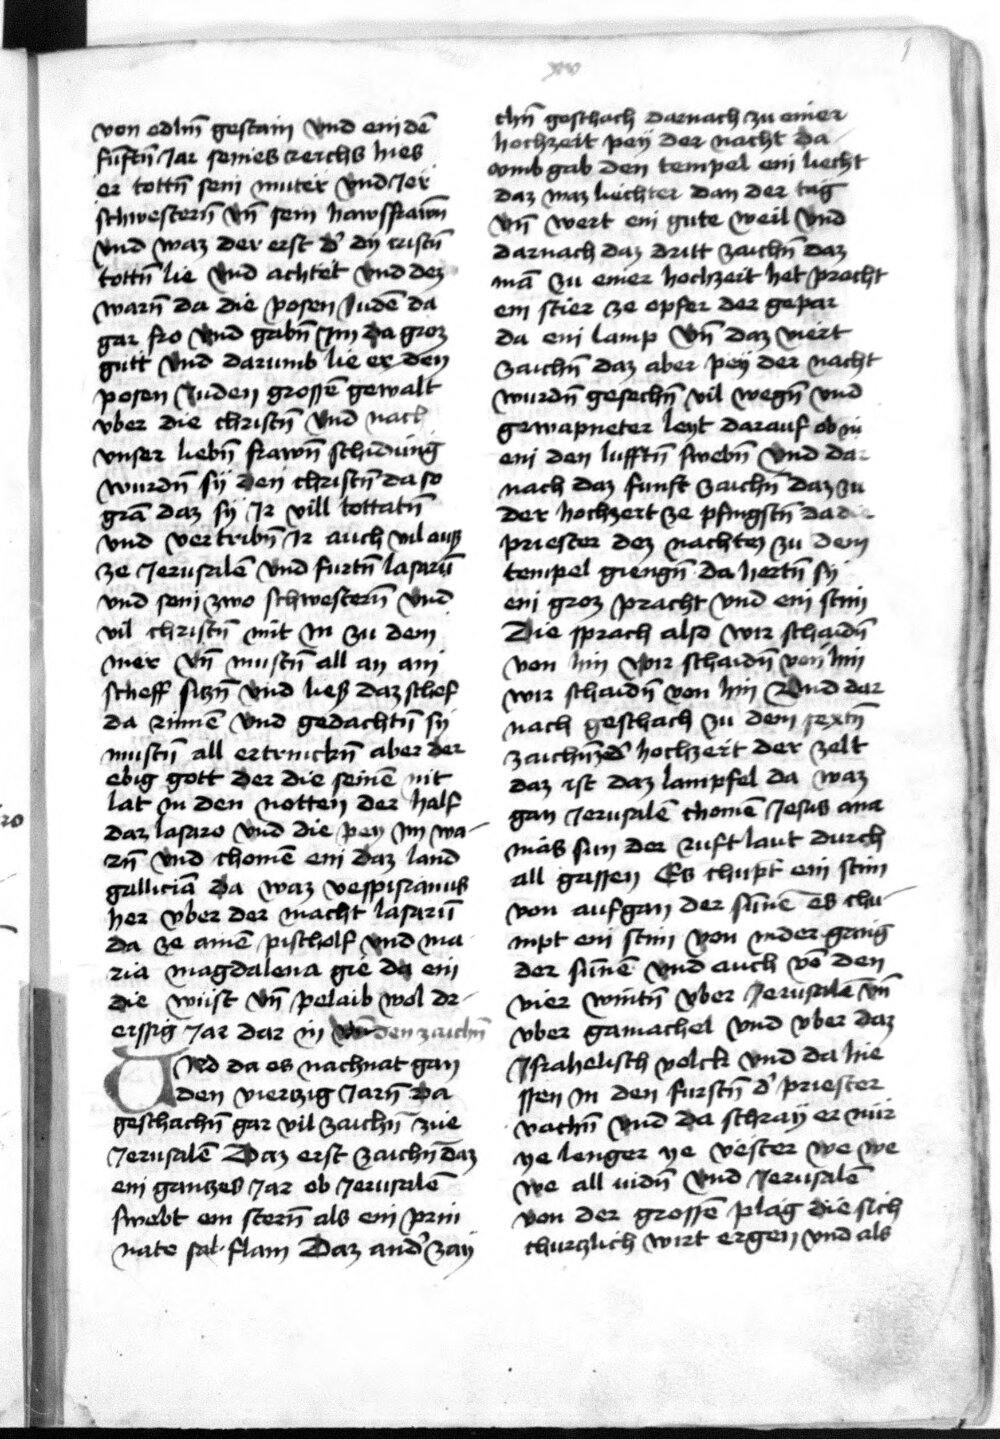 von edlñ gestain Vnd en dē
funftñ Jar seines reichs hies
er tottñ sein muter Vnd Jer
schwesterñ Vñ sein hawsfrawñ
vnd waz der erst d' dy cristñ
tottñ lie Vnd achtet Vnd dez
warñ da die posen Judē da
gar fro Vnd gabñ Jm da groz
gutt Vnd darumb lie er den
posen Juden grossē gewalt
vber die christñ Vnd nach
vnser liebñ frawñ schidung
wurdñ sy den christñ da so
grā daz sy Jr vill tottatñ
vnd vertribñ Jr auch vil ausz
ze Jerusalē Vnd furtñ lasarū
vnd sein zwo schwesterñ Vnd
vil christñ mit Jn zu dem
mer Vñ mustñ all an ain
scheff siczñ Vnd liesz daz schef
da rinnē Vnd gedachtñ sy
mustñ all ertrinckñ aber der
ebig gott der die seinē nit
lat in den notten der half
daz lasaro Vnd die pey Jm wa-
rñ Vnd chomē ein daz land
galliciā da waz vespisianus
her vber der macht lasarū
da ze ainē pischolf Vnd ma
ria magdalena gie da ein
die wüst Vñ pelaib wol dr-
eissig Jar dar in Von den zaichñ
Vnd da es nachnat gan
den vierczig Jarñ da
geschachñ gar vil zaichñ zue
Jerusalē Daz erst zaichñ daz
ein ganczes Jar ob Jerusalē
swebt ein sterñ als ein prin
nate sal flam Daz and' zay
chñ geschach darnach zu einer
hochzeit pey der nacht da
vmb gab den tempel ein liecht
daz waz liechter dan der tag
Vñ wert ein gute weil Vnd
darnach daz dritt zaichñ daz
mā zu einer hochzeit het pracht
ein stier ze opfer der gepar
da ein lamp Vñ daz viert
zaichñ daz aber pey der nacht
wurdñ gesechñ vil wegñ Vnd
gewapneter leyt darauf ob in
ein den lufftñ swebñ Vnd dar
nach daz funft zaichñ daz zu
der hochzeit ze pfingstñ da d
priester dez nachtez zu dem
tempel giengñ da hertñ sy
ein groz pracht Vnd ein stim
Die sprach also wir schaidñ
von hin wir schaidñ von hin
wir schaidñ von hin Vnd dar
nach geschach zu dem sextñ
zaichñ ze d' hochzeit der zelt
daz ist daz lampfel da waz
gan Jerusalē chomē Jesus ana
nias sun der ruft laut durch
all gassen Es chupt ein stim
von aufgan der sunnē es chu-
mpt ein stim von nidergang
der sunnē Vnd auch vō den
vier wintñ vber Jerusalē Vñ
vber gamachel Vnd vber daz
Jsrahelisch volck Vnd da hie
ssen in den furstñ d' priester
vachñ Vnd da schray er nür
ye lenger ye vester we we
we all uidñ Vnd Jerusalē
von der grossē plag die sich
churczlich wirt ergen Vnd als